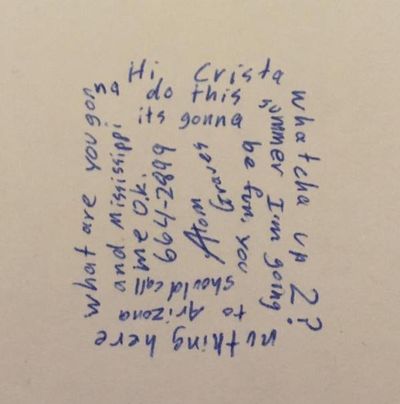 Hi Crista
whatcha up 2?
nuthing here
what are you gon
na do this
summer I'm going
to Arizona
and Mississippi
its gonna
be fun, you
should call
me OK.
664-2899